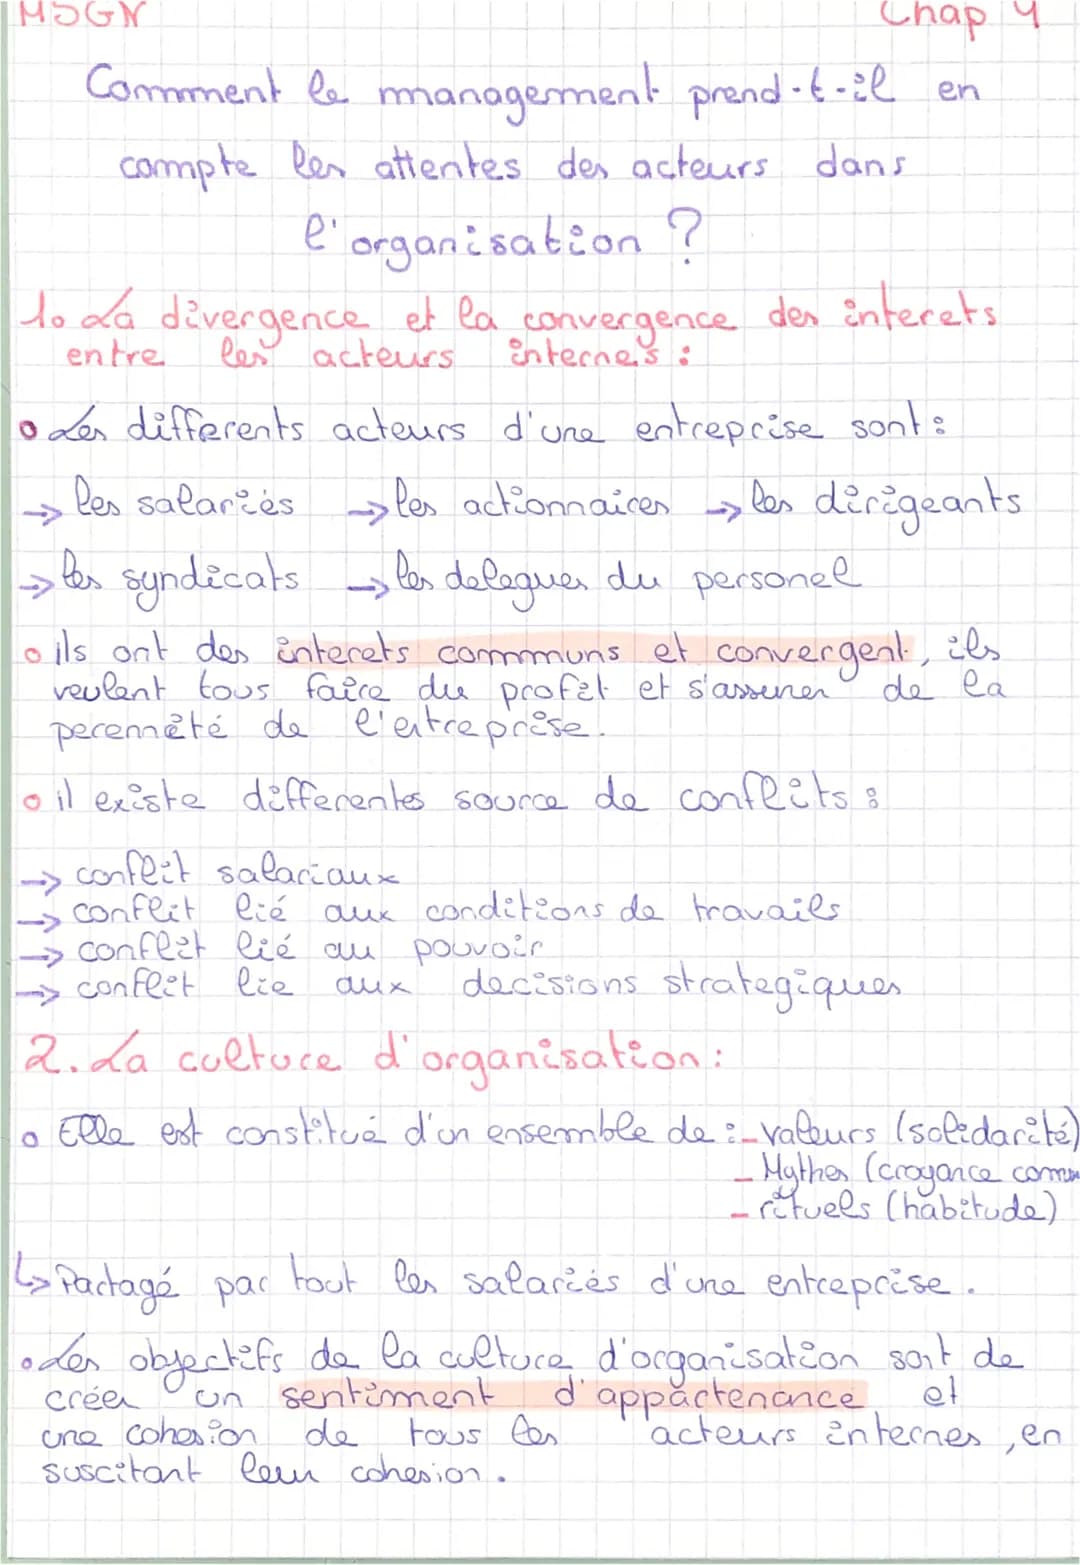 MSGN Chap 4
Comment le management prend-t-il en
compte les attentes des acteurs dans
l'organisation ?
1. La divergence et la convergence des interets
entre les acteurs internes :
Les differents acteurs d'une entreprise sont :
→ les salariés → les actionnaires → les dirigeants
→ les syndicats → les delegues du personel
ils ont des interets commmuns et convergent, ils
veulent tous faire du profit et s'assurer de la
perennité de l'entreprise.
il existe differentes source de conflits :
→ conflit salariaux
→ conflit lié aux conditions de travails
→ conflit lié au pouvoir
→ conflit lie aux decisions strategiques
2. La culture d'organisation :
Elle est constitué d'un ensemble de : - valeurs (solidarité)
- Mythes (croyance commu
- rituels (habitude)
↳ Partagé par tout les salariés d'une entreprise.
Les objectifs de la culture d'organisation sont de
créer un sentiment d'appartenance et
une cohesion de tous les acteurs internes, en
suscitant leur cohesion.